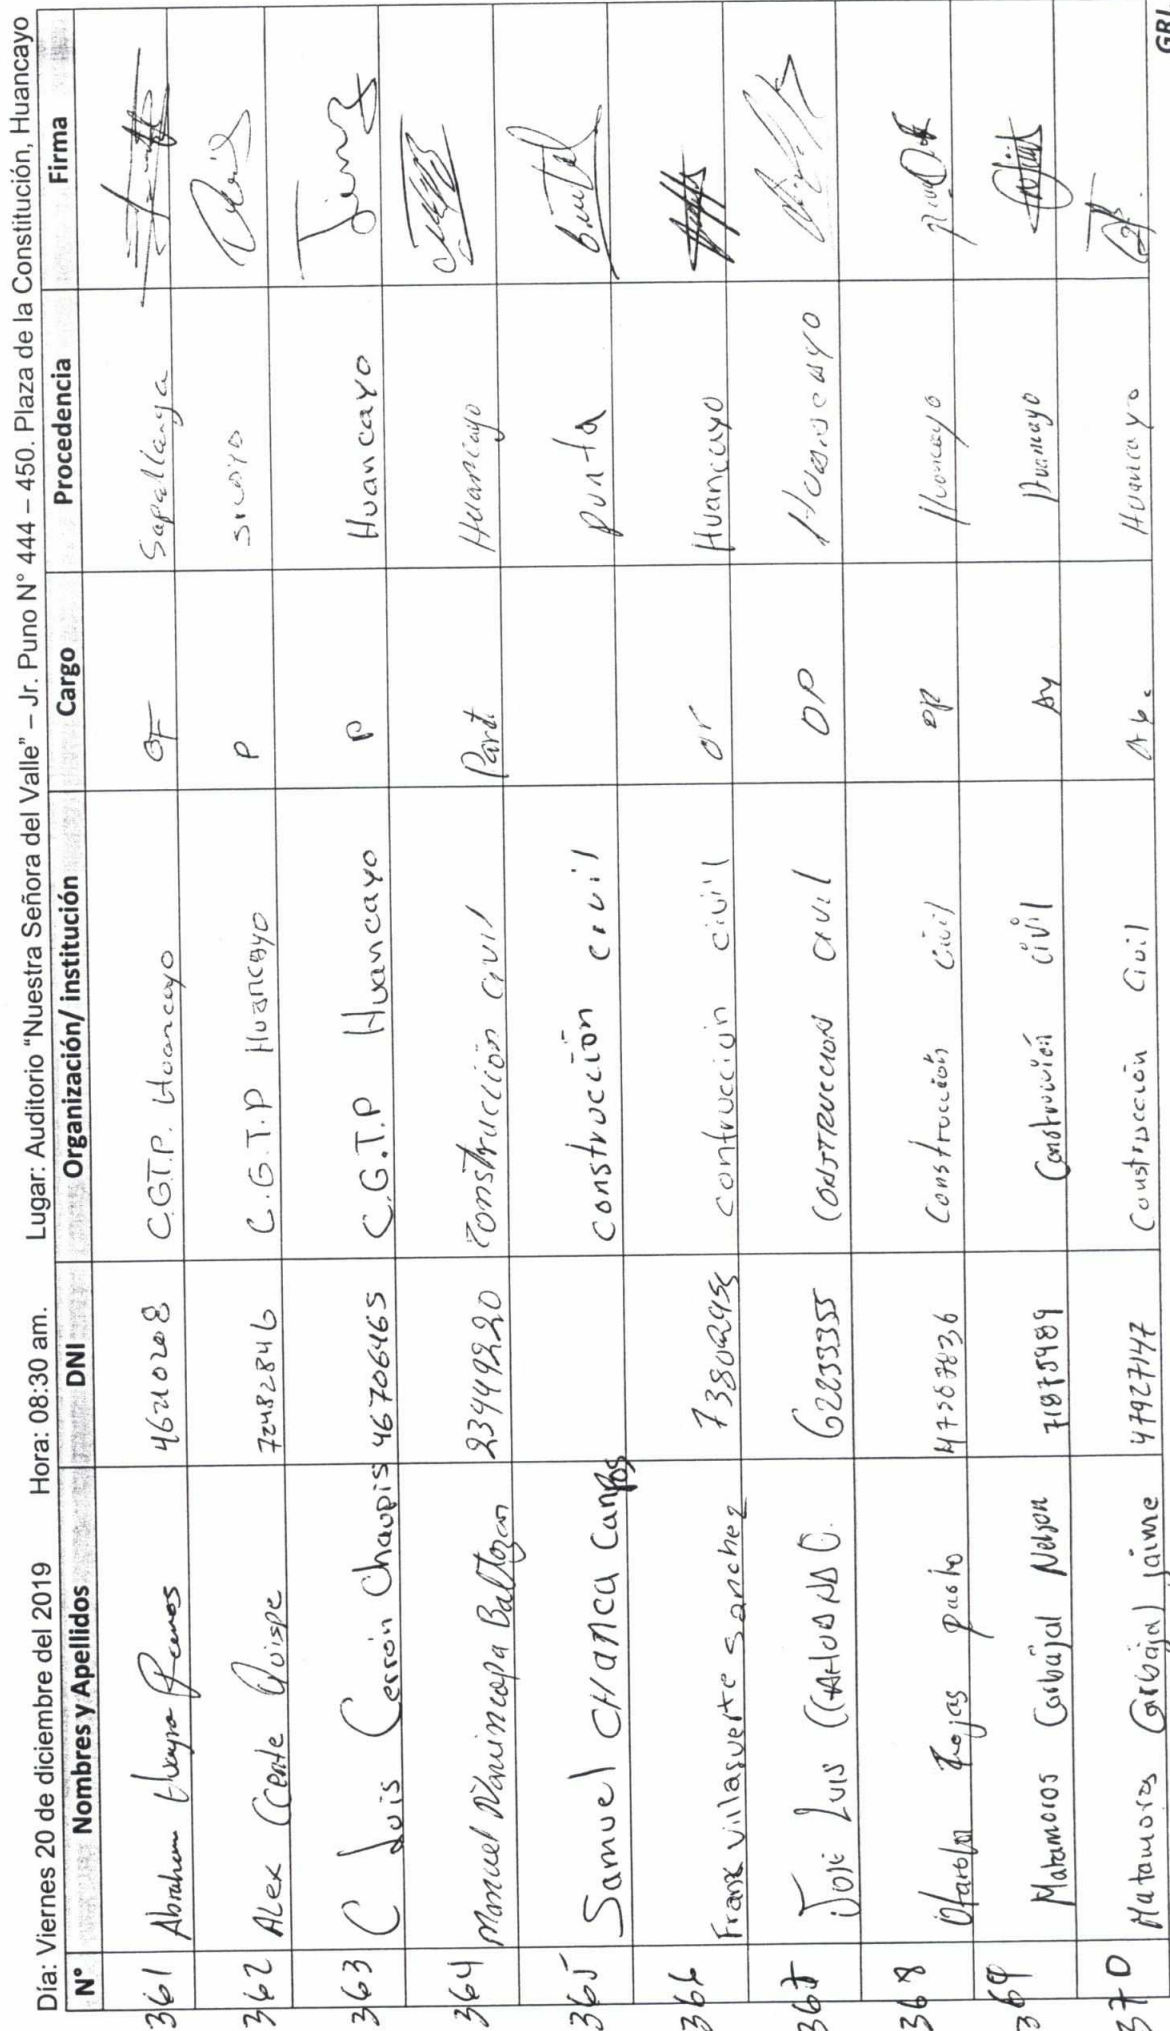 Día: Viernes 20 de diciembre del 2019 Hora: 08:30 am. Lugar: Auditorio “Nuestra Señora del Valle” – Jr. Puno N° 444 – 450. Plaza de la Constitución, Huancayo
N° Nombres y Apellidos DNI Organización/ institución Cargo Procedencia Firma
361 Abraham 46210208 C.G.T.P. Huancayo OF Sapallanga
362 Alex Ccente Quispe 72482846 C.G.T.P Huancayo P
363 C Luis Cerrón Chaupis 46706465 C.G.T.P Huancayo P Huancayo
364 Manuel Ñauincopa Baltazar 23449220 Construcción Civil Part. Huancayo
365 Samuel CHANCA Campos construcción civil punta
366 Frank Villasuerte Sanchez contrucción civil or Huancayo
367 José Luis 62233355 CONSTRUCCION CIVIL OP Huancayo
368 Rojas Construcción Civil op Huancayo
369 Matamoros Carbajal Nelson 71875989 Construción civil Ay Huancayo
370 Matamoros Carbajal jaime 47927147 Construcción Civil Huancayo
GRJ